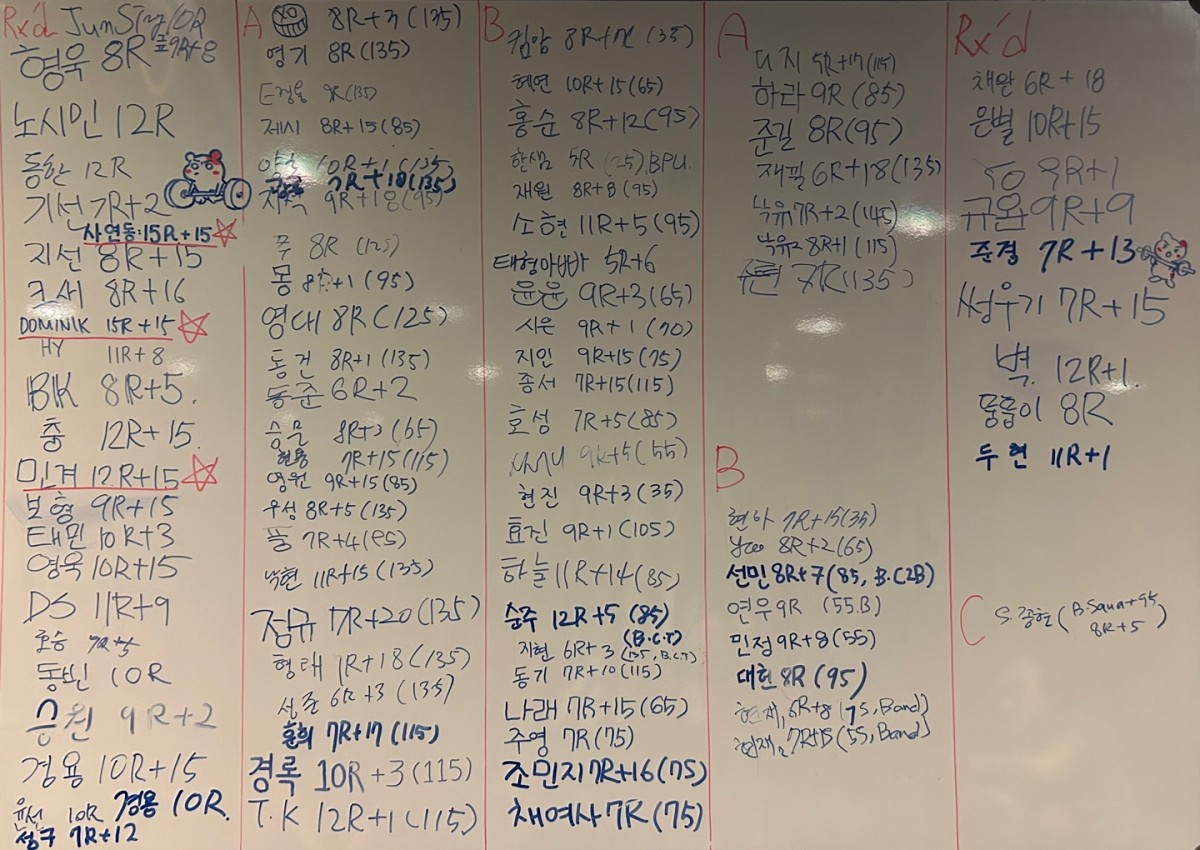 Rx'd JunSig 10R
형욱 8R 9R+8
노시민 12R
동한 12R
기선 7R+2
사연동:15R+15
지선 8R+15
8R+16
DOMINIK 15R+15
HY 11R+8
BK 8R+5
충 12R+15
민겨 12R+15
보형 9R+15
태민 10R+3
영욱 10R+15
DS 11R+9
호승
동빈 10R
승원 9R+2
경용 10R+15
윤선 10R
경용 10R
성구 7R+12
A 8R+3 (135)
영기 8R (135)
9R(135)
제시 8R+15(85)
10R+1 (135)
7R+18(135)
9R+18(95)
쭈 8R (125)
몽 8R+1 (95)
영대 8R (125)
동건 8R+1 (135)
동준 6R+2
승문 8R+3 (65)
현용 7R+15(115)
영원 9R+15(85)
우성 8R+5(135)
풍 7R+4(95)
낙현 11R+15 (135)
점규 7R+20(135)
형태 7R+18(135)
성준 6R+3 (135)
훈희 7R+17 (115)
경록 10R+3(115)
T.K 12R+1 (115)
B 킴암 (35)
혜연 10R+15(65)
홍순 8R+12(95)
한샘 5R (25).BPU.
재원 8R+8 (95)
소현 11R+5(95)
태형아빠 5R+6
윤윤 9R+3(65)
시은 9R+1 (70)
지인 9R+15 (75)
종서 7R+15(115)
효성 7R+5(85)
9R+5(55)
현진 9R+3 (35)
효진 9R+1 (105)
하늘 11R+14(85)
순주 12R+5 (85)
(B.C.T)
지현 6R+3 (135, B.C.T)
동기 7R+10(115)
나래 7R+15(65)
주영 7R(75)
조민지 7R+16(75)
채여사 7R (75)
A
디지 5R+17(115)
하라 9R (85)
준길 8R(95)
재필 6R+18(135)
낙유 7R+2(145)
낙유2 8R+1 (115)
7R(135)
B
현아 7R+15(35)
8R+2(65)
선민 8R+7(85, B.C2B)
연우 9R (55.B)
민정 9R+8(55)
대현 8R (95)
현재, 6R+8 (75, Band)
현재2 7R+15(55, Band)
Rx'd
채완 6R+18
은별 10R+15
9R+1
규완 9R+9
준경 7R+13
써우기 7R+15
벽. 12R+1.
뚱뚭이 8R
두현 11R+1
C S.종현 (B.Squa+95
8R+5)